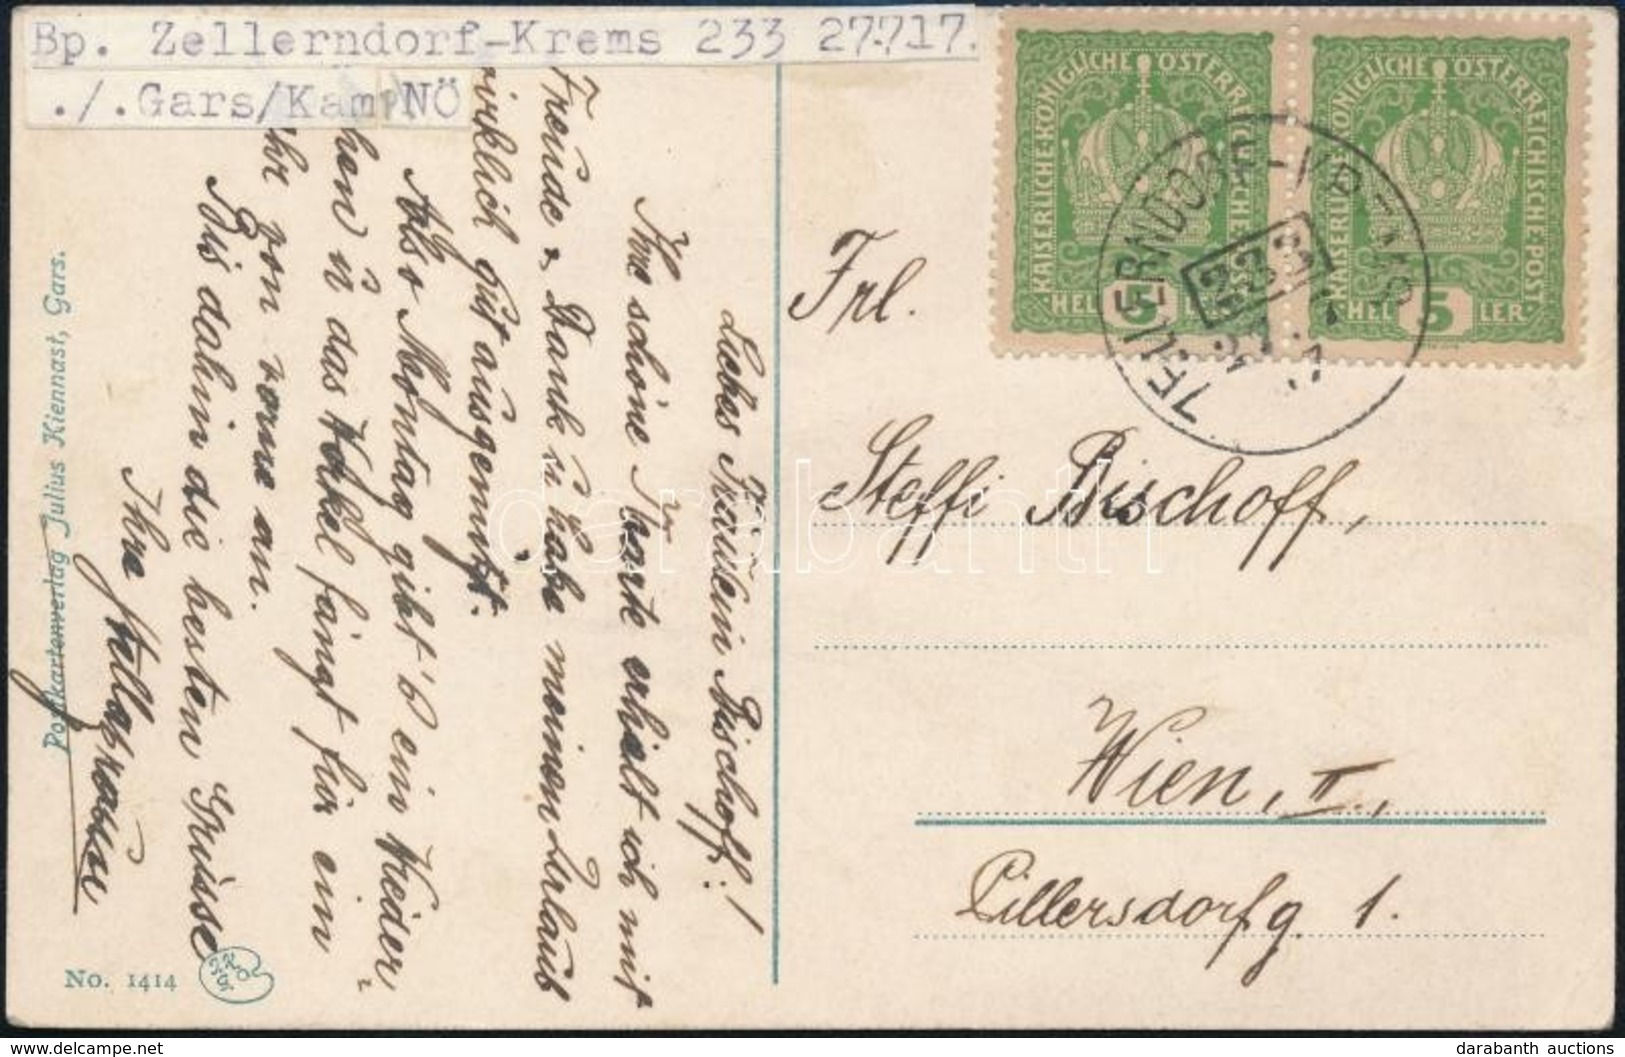 Bp. Zellerndorf-Krems 233 27.7.17.
./.Gars/Kamp NÖ
KAISERLICHE KÖNIGLICHE ÖSTERREICHISCHE POST
5 HELLER
KAISERLICHE KÖNIGLICHE ÖSTERREICHISCHE POST
5 HELLER
ZELLERNDORF-KREMS
233
27. 7
17
Liebes Fräulein Bischoff!
Ihre schöne Karte erhielt ich mit
Freude, Dank u. habe meinen Urlaub
wirklich gut ausgenützt.
Also Montag gibt's ein Wieder-
sehen u das Werkel fängt für ein
Jahr von vorne an.
Bis dahin die besten Grüsse
Ihre
Frl.
Steffi Bischoff,
Wien, II.,
Pillersdorfg. 1.
Postkartenverlag Julius Kiennast, Gars.
No. 1414
darabanth
darabanth auctions
https://www.delcampe.net